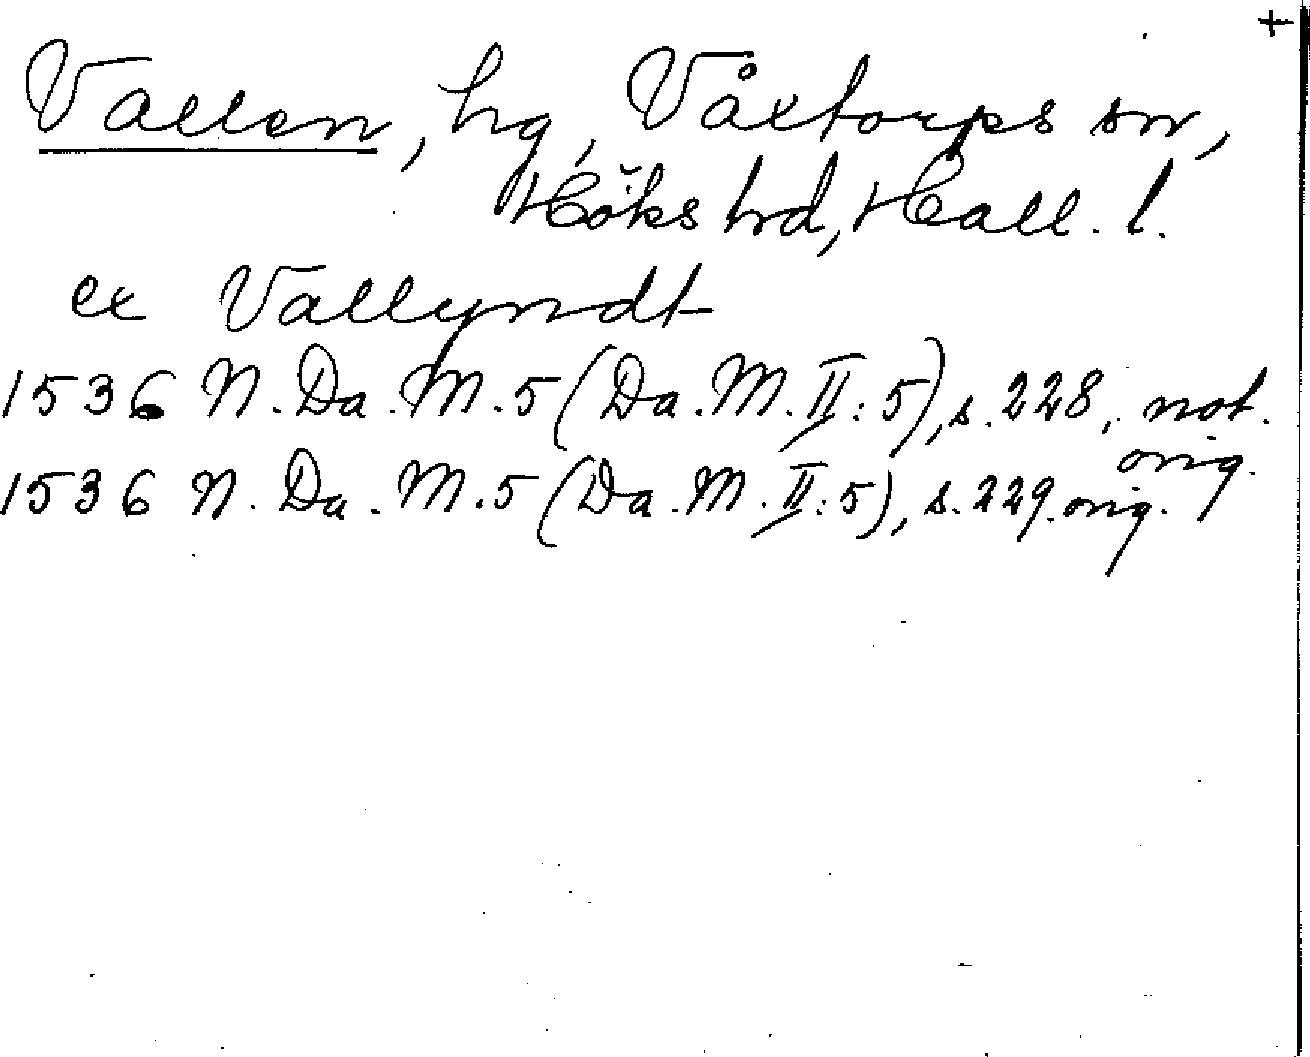 +
Vallen, hg, Våxtorps sn,
Höks hrd, Hall. l.
ex Vallyndt
1536 N. Da. M. 5 (Da. M. II: 5), s. 228, not.
orig.
1536 N. Da. M. 5 (Da. M. II: 5), s. 229. orig.